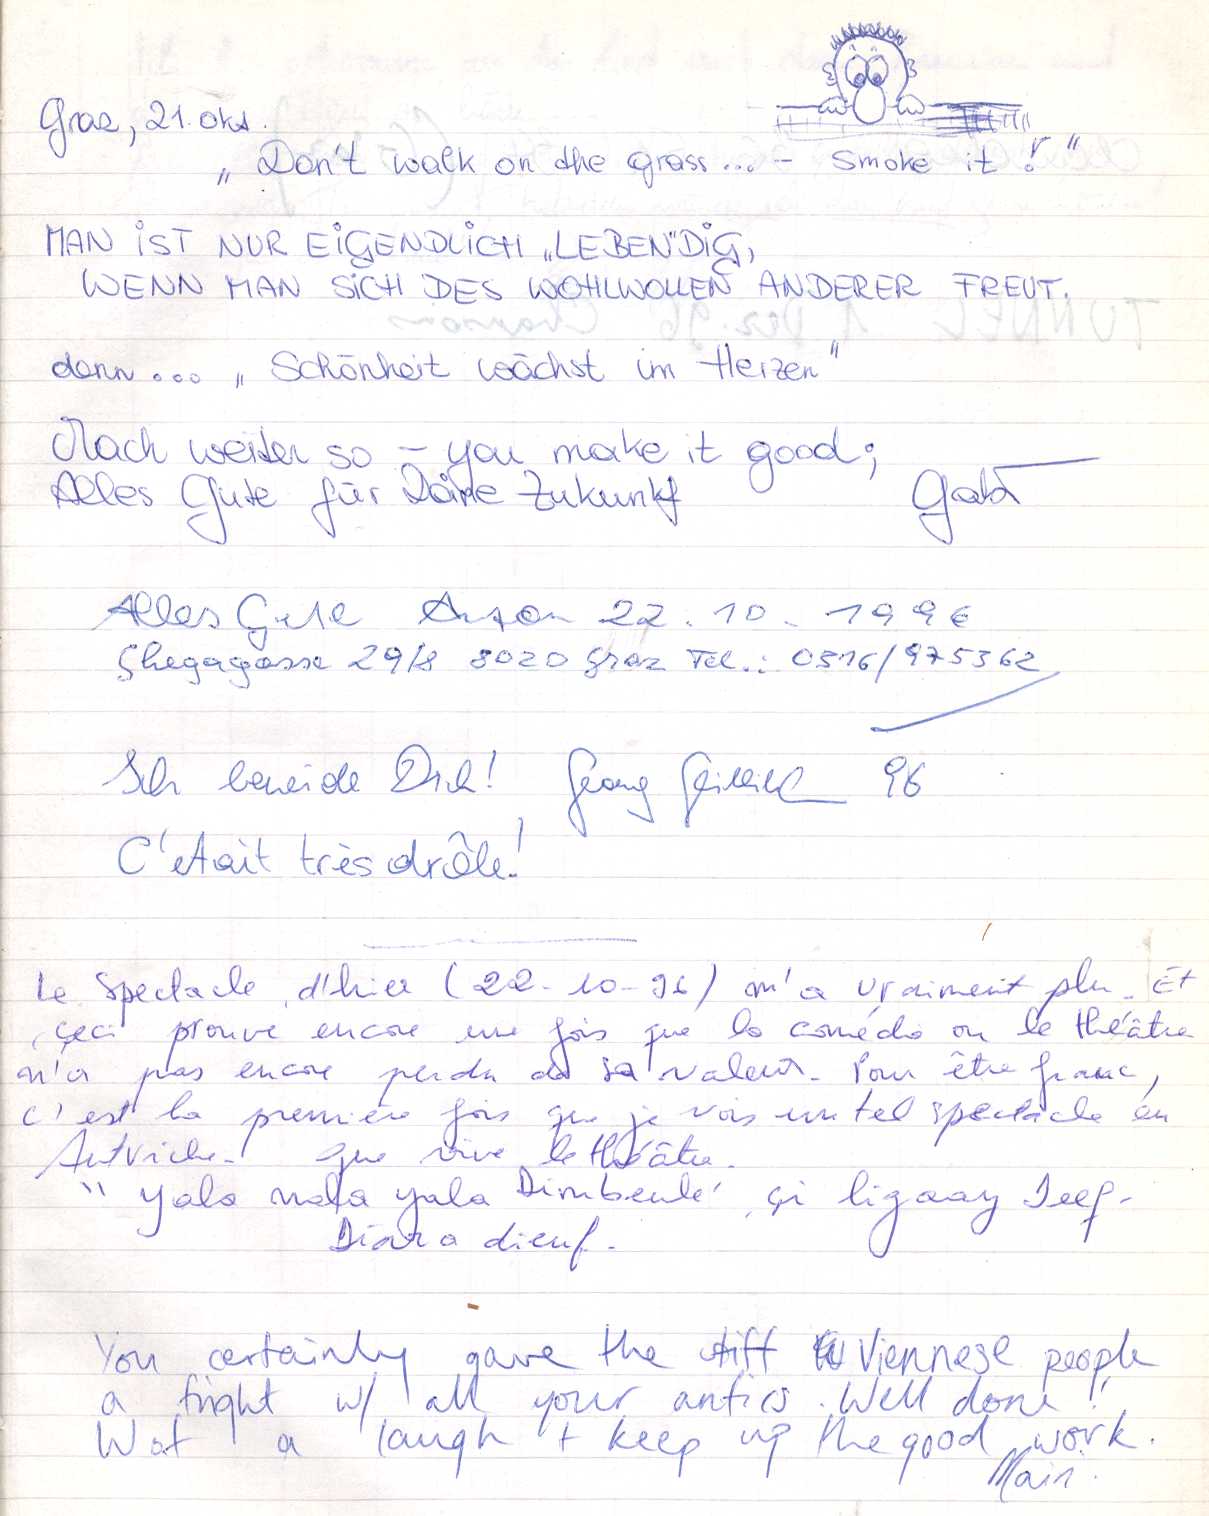 Graz, 21. Okt.
„Don't walk on the grass... - Smoke it!"
MAN IST NUR EIGENDLICH „LEBEN"DIG,
WENN MAN SICH DES WOHLWOLLEN ANDERER FREUT.
denn... „Schönheit wächst im Herzen"
Mach weiter so - you make it good;
Alles Gute für Deine Zukunft Gabi
Alles Gute Anton 22.10.1996
Ghegagasse 29/8 8020 Graz Tel.: 0316/975362
Ich beneide Dich! Georg 96
C'etait très drôle!
Le Spectacle d'hier (22-10-96) m'a vraiment plu. Et
ceci prouve encore une fois que la comédo ou le théâtre
n'a pas encore perdu de sa valeur. Pour être franc,
c'est la première fois que je vois un tel spectacle en
Autriche. Que vive le théâtre.
" yala nala yala Dimbeulé çi ligaay Deef.
Diara dieuf.
You certainly gave the stiff Viennese people
a fright w/ all your antics. Well done!
Wot a laugh + keep up the good work.